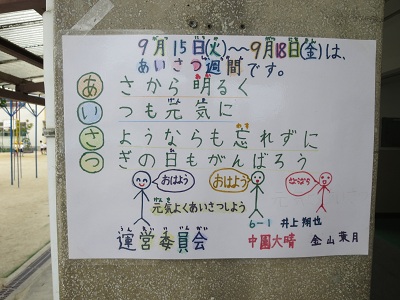 9月15日(火)～9月18日(金)は、
あいさつ週間です。
あさから明るく
いつも元気に
さようならも忘れずに
つぎの日もがんばろう
おはよう
おはよう
さようなら
元気よくあいさつしよう
6-1 井上翔也
運営委員会 中園大晴 金山葉月